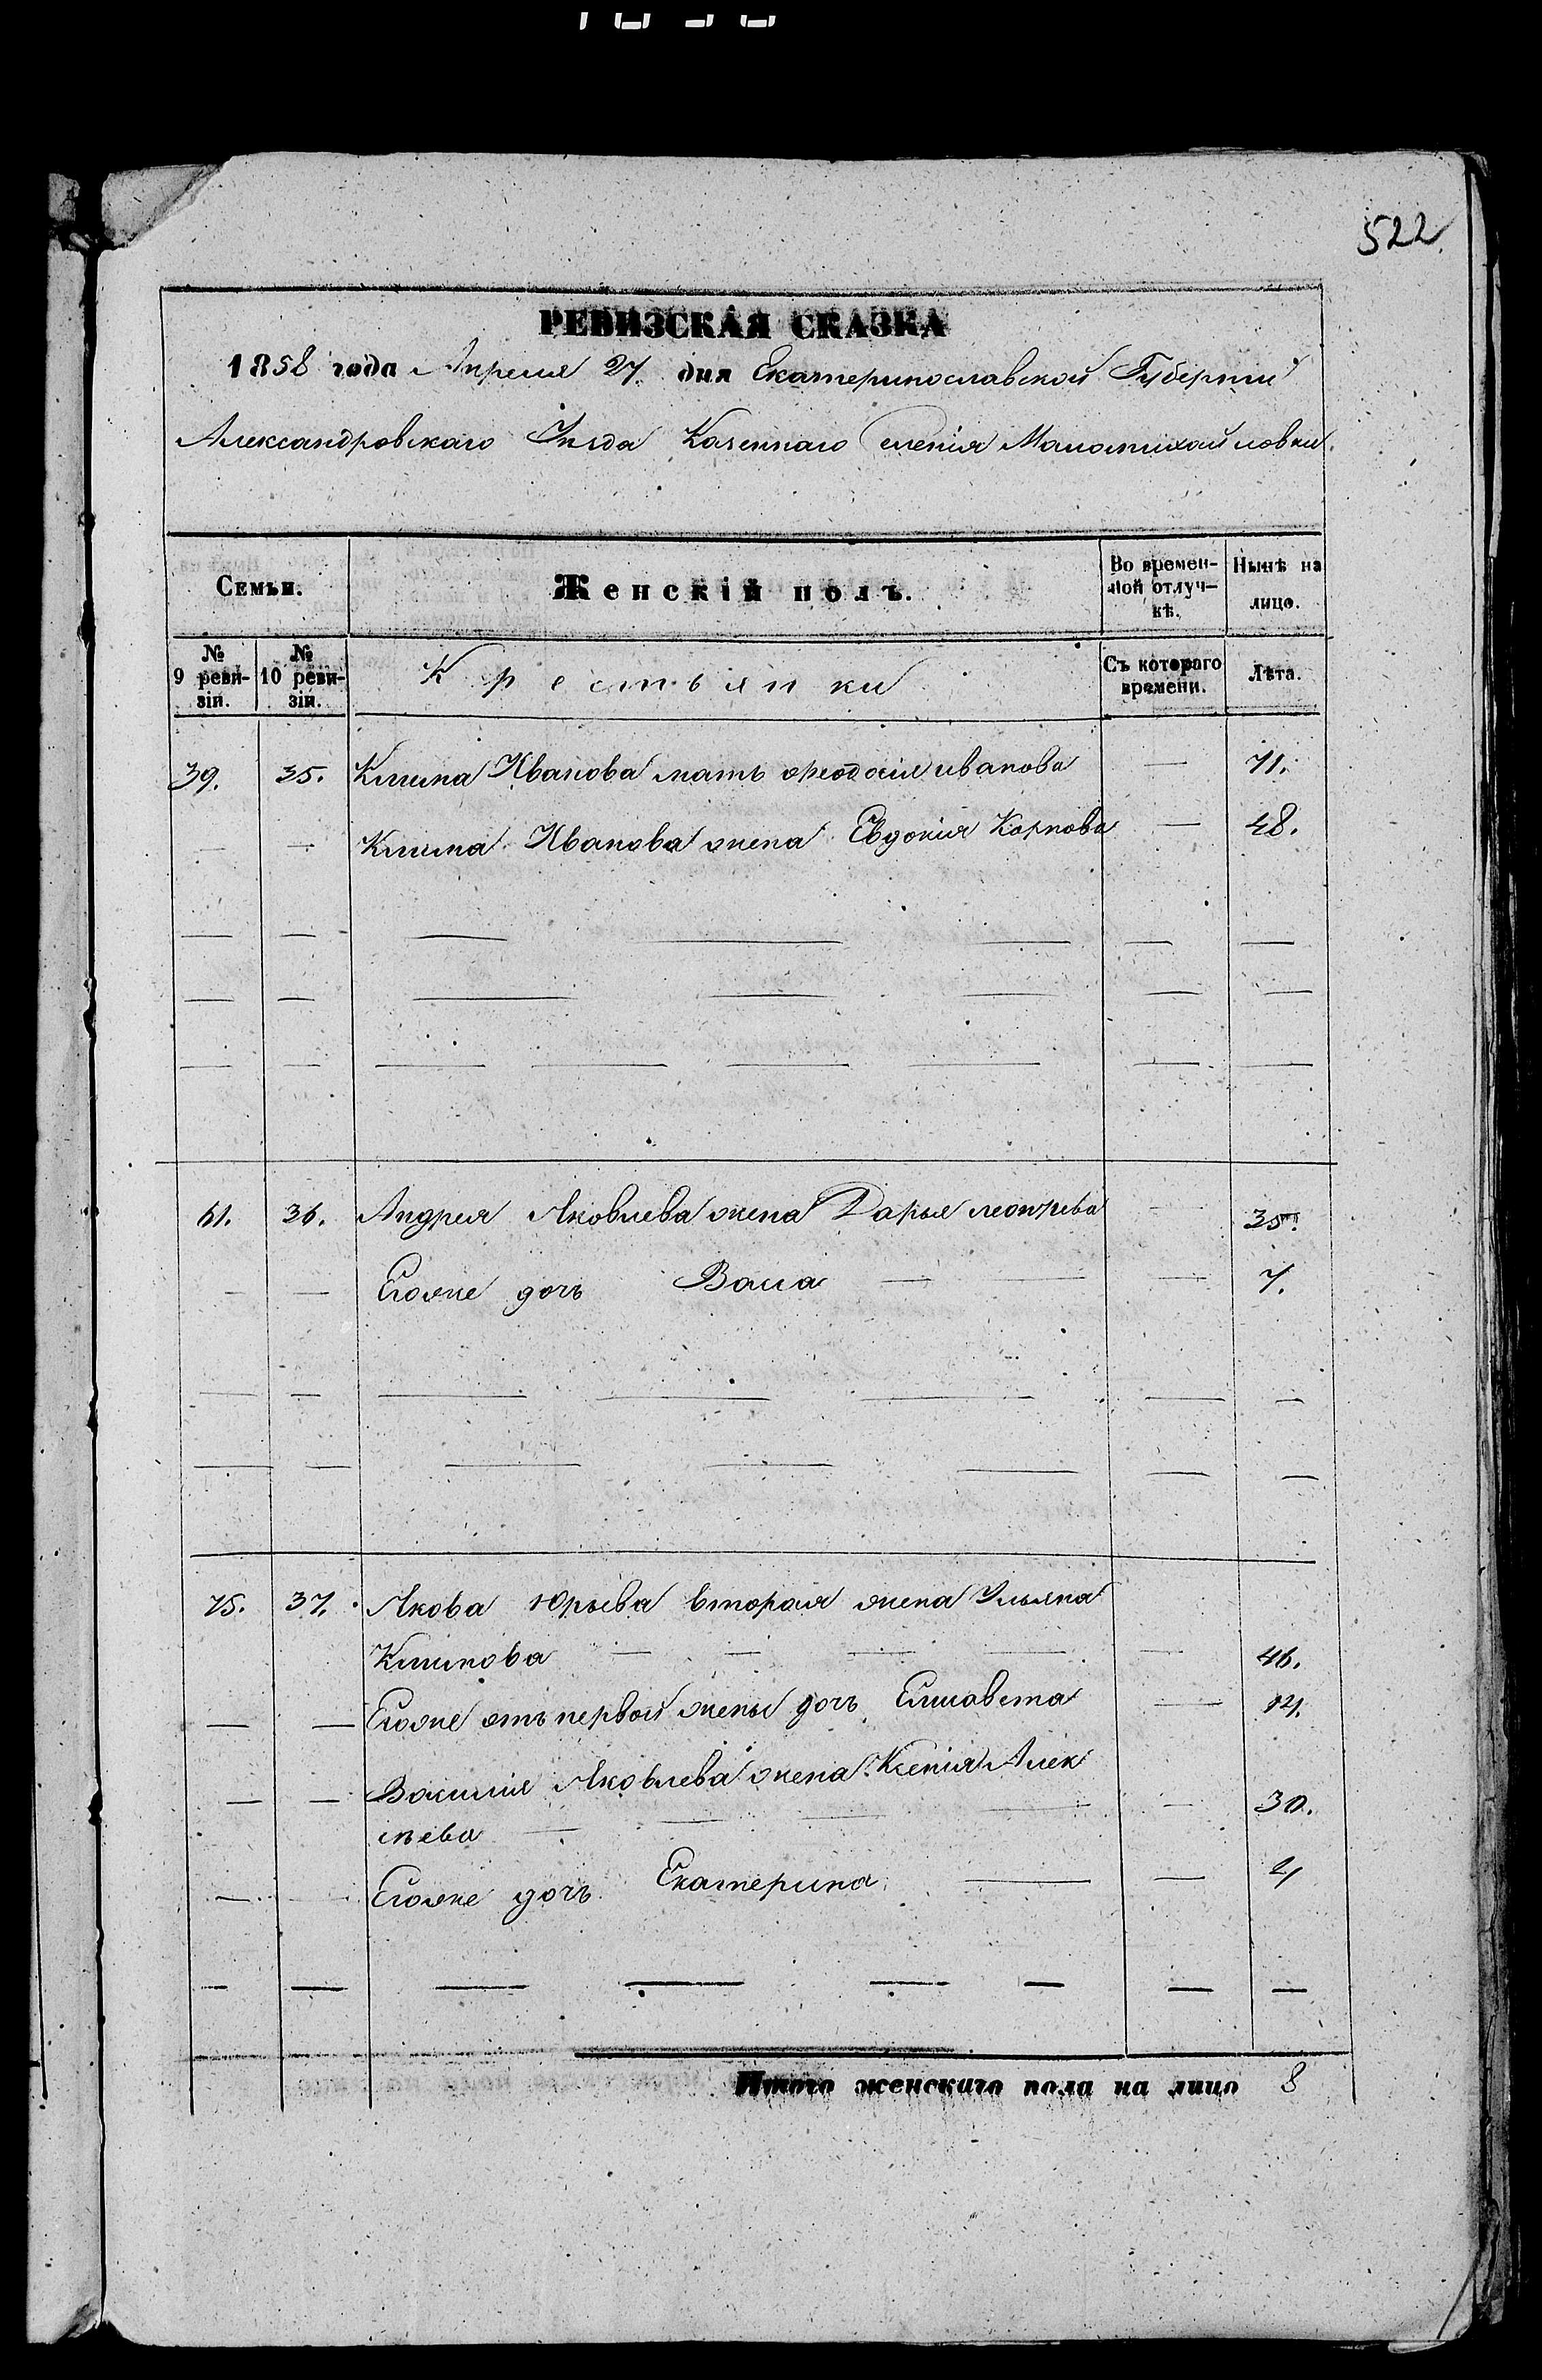 522
РЕВИЗСКАЯ СКАЗКА
1858 года Апреля 27. дня Екатеринославской Губернии
Александровскаго Уезда Казеннаго Селенія Маломихайловки.
Семьи. Женскій полъ. Во времен-ной отлуч-кѣ. Нынѣ на лицо.
№ 9 реви-зіи. № 10 реви-зіи. Крестьянки Съ котораго времени. Лѣта.
39. 35. Клима Иванова мать Феодосія иванова — 71.
— — Клима Иванова жена Евдокія Карпова — 48.
61. 36. Андрея Яковлева жена Дарья леонтьева — 35.
— — Егоже дочь Васса — — — 7.
75. 37. Якова Юрьева вторая жена Ульяна
Климова — — — — — 46.
— — Егоже отъ первой жены дочь Елисавета — 14.
— — Василія Яковлева жена Ксенія Алек
сѣева — — — — — 30.
— — Егоже дочь Екатерина — — 4
Итого женскаго пола на лицо 8